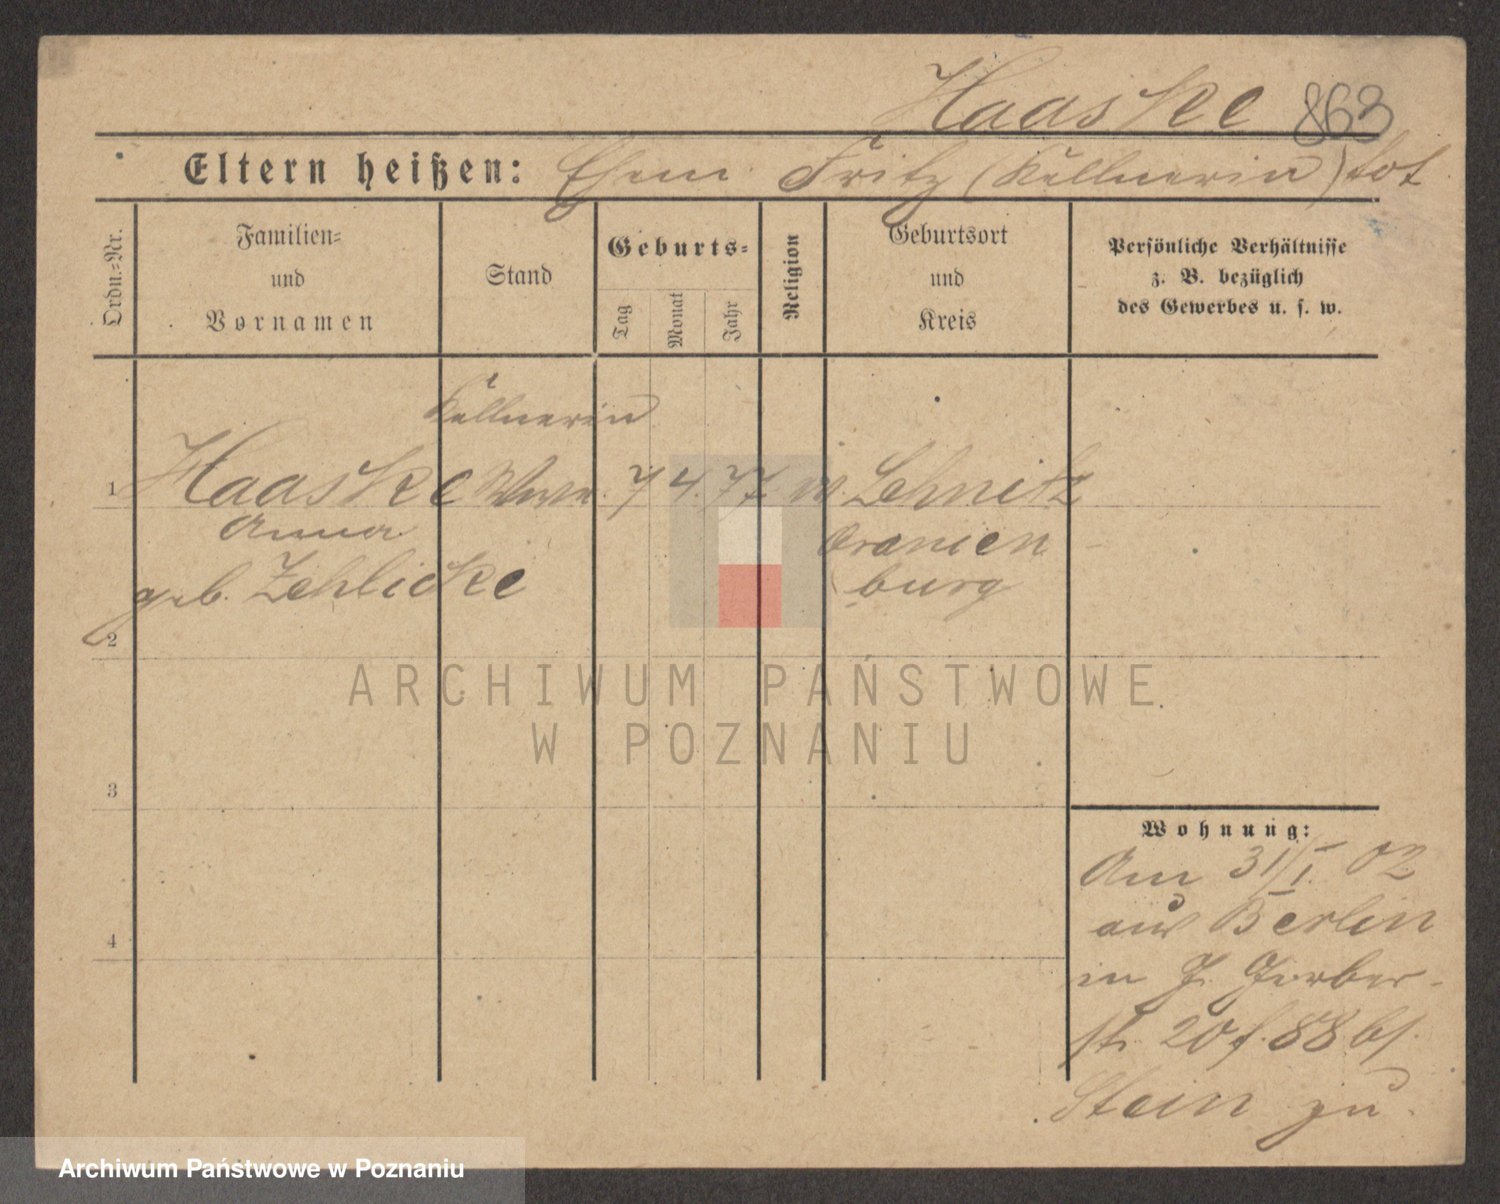 Haaske 863
Eltern heißen: Ehem. Fritz (Kellnerin) tot
Ordn.=Nr.
Familien=
und
Vornamen
Stand
Geburts=
Tag
Monat
Jahr
Religion
Geburtsort
und
Kreis
Persönliche Verhältnisse
z. B. bezüglich
des Gewerbes u. s. w.
Kellnerin
1 Haaske Wwe. 7 4. 77 Lehnitz
Anna Oranien
geb. Zehlicke burg
2
3
4
Wohnung:
Am 31/I. 02
aus Berlin
in J. Gerber-
st. 20 f. 88 b/
Stein zu.
ARCHIWUM PAŃSTWOWE
W POZNANIU
Archiwum Państwowe w Poznaniu